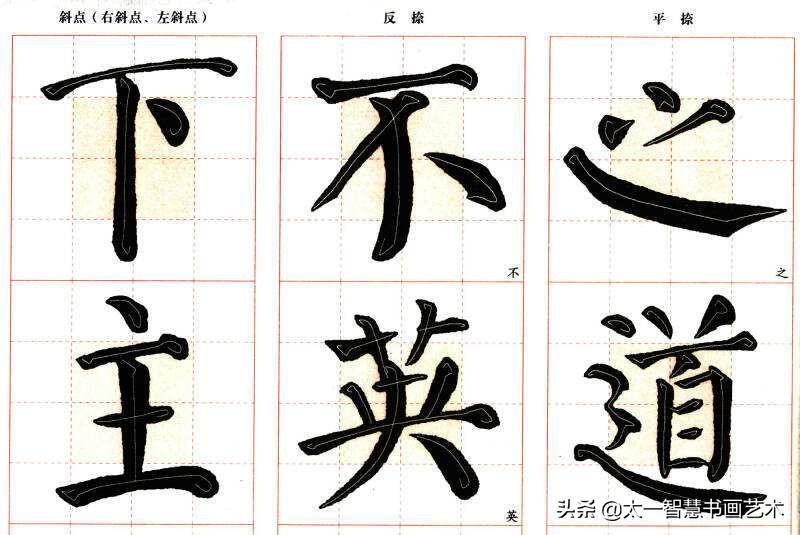 斜点（右斜点、左斜点） 反捺 平捺
下 不 之
不 之
主 英 道
英
头条 @太一智慧书画艺术